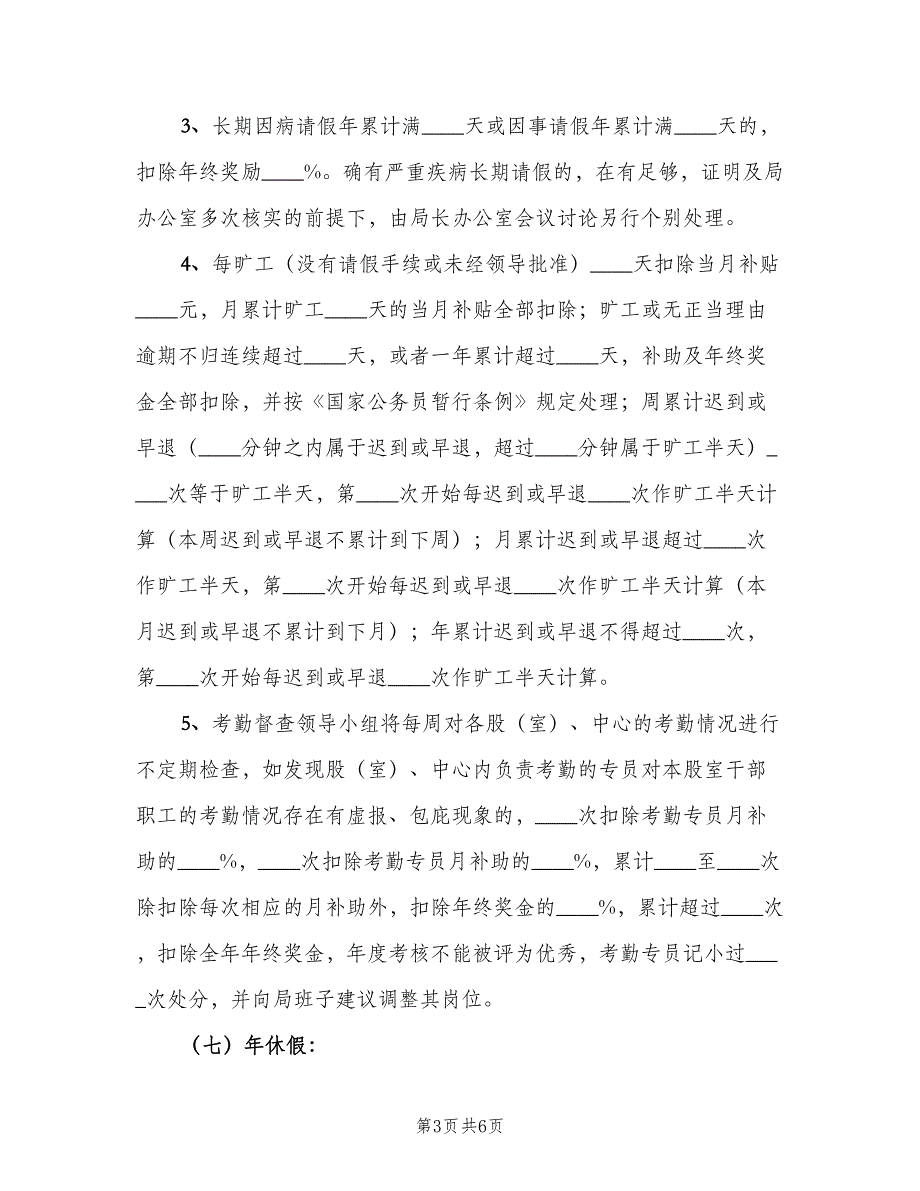 3、长期因病请假年累计满____天或因事请假年累计满____天的，
扣除年终奖励____%。确有严重疾病长期请假的，在有足够，证明及局
办公室多次核实的前提下，由局长办公室会议讨论另行个别处理。
4、每旷工（没有请假手续或未经领导批准）____天扣除当月补贴
____元，月累计旷工____天的当月补贴全部扣除；旷工或无正当理由
逾期不归连续超过____天，或者一年累计超过____天，补助及年终奖
金全部扣除，并按《国家公务员暂行条例》规定处理；周累计迟到或
早退（____分钟之内属于迟到或早退，超过____分钟属于旷工半天）_
___次等于旷工半天，第____次开始每迟到或早退____次作旷工半天计
算（本周迟到或早退不累计到下周）；月累计迟到或早退超过____次
作旷工半天，第____次开始每迟到或早退____次作旷工半天计算（本
月迟到或早退不累计到下月）；年累计迟到或早退不得超过____次，
第____次开始每迟到或早退____次作旷工半天计算。
5、考勤督查领导小组将每周对各股（室）、中心的考勤情况进行
不定期检查，如发现股（室）、中心内负责考勤的专员对本股室干部
职工的考勤情况存在有虚报、包庇现象的，____次扣除考勤专员月补
助的____%，____次扣除考勤专员月补助的____%，累计____至____次
除扣除每次相应的月补助外，扣除年终奖金的____%，累计超过____次
，扣除全年年终奖金，年度考核不能被评为优秀，考勤专员记小过___
_次处分，并向局班子建议调整其岗位。
（七）年休假：
第3页共6页